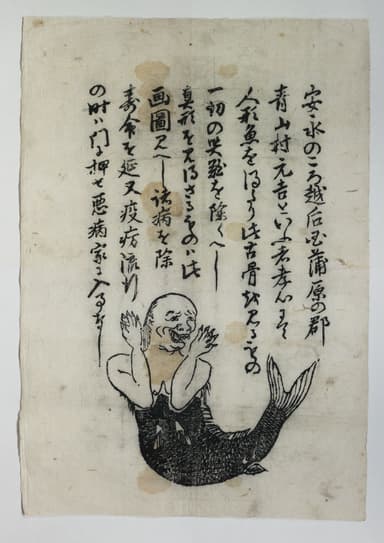 安永のころ越后国蒲原の郡
青山村元吉といふ者孝心にて
人形魚を得たり此古骨を見るもの
一切の災難を除くへし
真形を見得さるものハ此
画圖見へし諸病を除
寿命を延又疫病流行
の時ハ門に押せ悪病家に入事なし